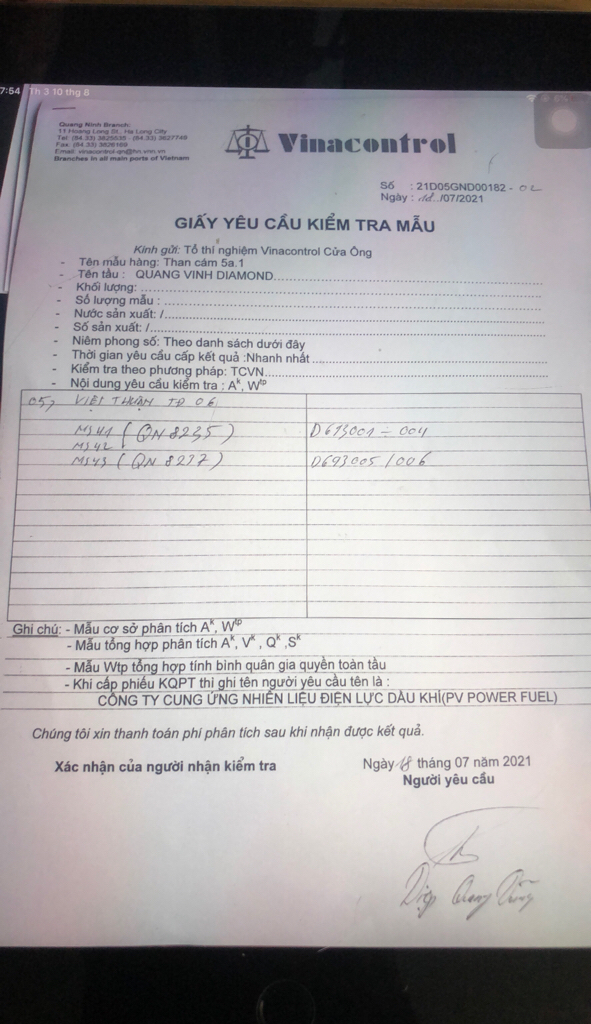 7:54 Th 3 10 thg 8
Quang Ninh Branch:
11 Hoang Long St., Ha Long City
Tel: (84.33) 3825535 - (84.33) 3827748
Fax: (84.33) 3826169
Email: vinacontrol-qn@hn.vnn.vn
Branches in all main ports of Vietnam
Vinacontrol
Số : 21D05GND00182 - 02
Ngày : 18./07/2021
GIẤY YÊU CẦU KIỂM TRA MẪU
Kính gửi: Tổ thí nghiệm Vinacontrol Cửa Ông
- Tên mẫu hàng: Than cám 5a.1
- Tên tầu : QUANG VINH DIAMOND
- Khối lượng:
- Số lượng mẫu :
- Nước sản xuất: /
- Số sản xuất: /
- Niêm phong số: Theo danh sách dưới đây
- Thời gian yêu cầu cấp kết quả :Nhanh nhất
- Kiểm tra theo phương pháp: TCVN
- Nội dung yêu cầu kiểm tra : Aᵏ, Wᵗᵖ
05, VIỆT THUẬN TĐ 06
MS41 ( QN 8235 ) D693001 - 004
MS42
MS43 ( QN 8277 ) D693005 / 006
Ghi chú: - Mẫu cơ sở phân tích Aᵏ, Wᵗᵖ
- Mẫu tổng hợp phân tích Aᵏ, Vᵏ , Qᵏ ,Sᵏ
- Mẫu Wtp tổng hợp tính bình quân gia quyền toàn tầu
- Khi cấp phiếu KQPT thì ghi tên người yêu cầu tên là :
CÔNG TY CUNG ỨNG NHIÊN LIỆU ĐIỆN LỰC DẦU KHÍ(PV POWER FUEL)
Chúng tôi xin thanh toán phí phân tích sau khi nhận được kết quả.
Xác nhận của người nhận kiểm tra
Ngày 18 tháng 07 năm 2021
Người yêu cầu
Diệp Quang Dũng